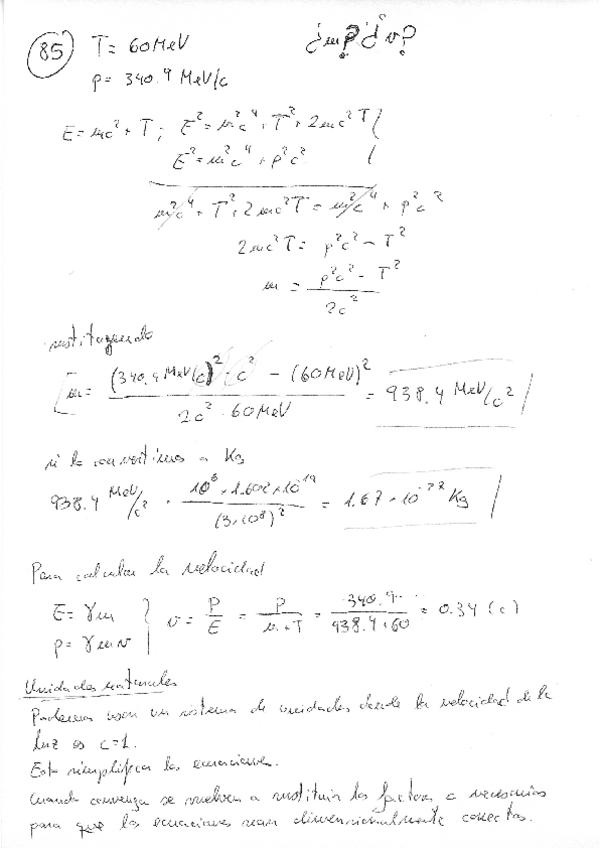 85 T = 60 MeV ¿m? ¿v?
p = 340.4 MeV/c
E = mc² + T ; E² = m²c⁴ + T² + 2mc²T
E² = m²c⁴ + p²c²
m²c⁴ + T² + 2mc²T = m²c⁴ + p²c²
2mc²T = p²c² - T²
m = (p²c² - T²) / 2c²
sustituyendo
m = ((340.4 MeV/c)² · c² - (60 MeV)²) / (2c² · 60 MeV) = 938.4 MeV/c²
si lo convertimos a Kg
938.4 MeV/c² · (10⁶ · 1.602 · 10⁻¹⁹) / (3·10⁸)² = 1.67 · 10⁻²⁷ Kg
Para calcular la velocidad
E = γm
p = γmv
v = p/E = p/(m+T) = 340.4/(938.4+60) = 0.34 (c)
Unidades naturales
Podemos usar un sistema de unidades donde la velocidad de la
luz es c=1.
Esto simplifica las ecuaciones.
Cuando convenga se vuelven a sustituir los factores c necesarios
para que las ecuaciones sean dimensionalmente correctas.